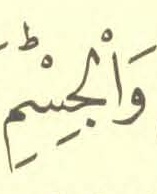 وَالْجِسْمِؕ